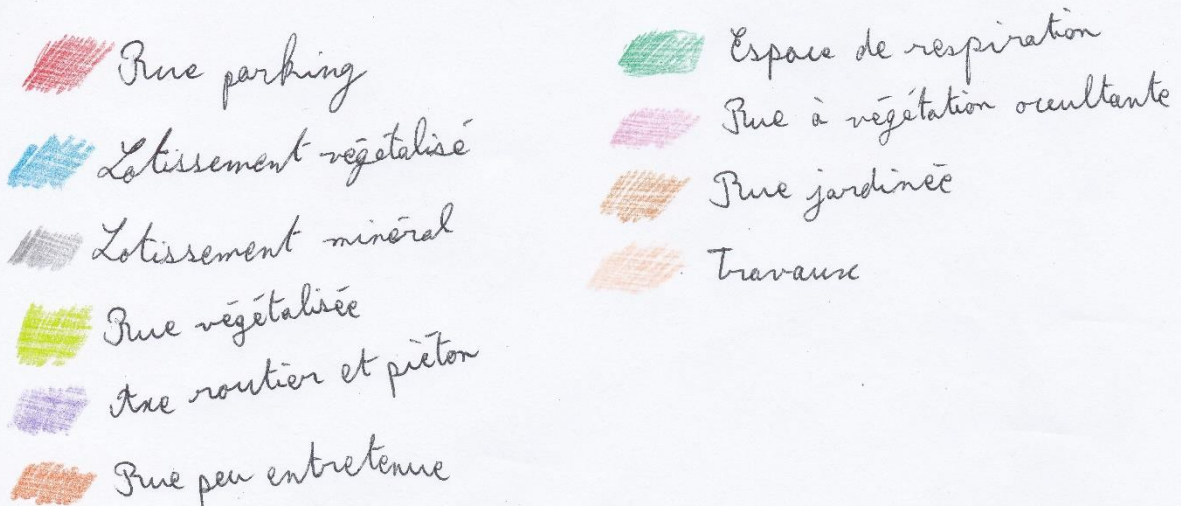 Rue parking
Lotissement végétalisé
Lotissement minéral
Rue végétalisée
Axe routier et piéton
Rue peu entretenue
Espace de respiration
Rue à végétation occultante
Rue jardinée
Travaux